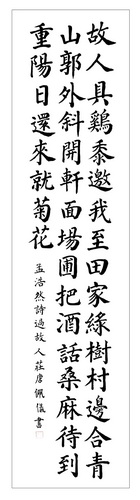 故人具鷄黍邀我至田家綠樹村邊合青
山郭外斜開軒面場圃把酒話桑麻待到
重陽日還來就菊花
孟浩然詩過故人莊唐佩儀書